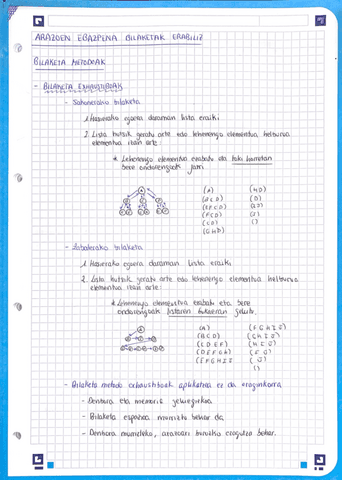 ARAZOEN EBAZPENA BILAKETAK ERABILIZ
BILAKETA METODOAK
- BILAKETA EXHAUSTIBOAK
- Sakonerako bilaketa
1. Hasierako egoera daraman lista eraiki
2. Lista hutsik geratu arte edo lehenengo elementua helburua
elementua izan arte:
* Lehenengo elementua ezabatu eta toki horretan
bere ondorengoak jarri
(A)
(BCD)
(EFCD)
(FCD)
(CD)
(GHD)
(HD)
(D)
(IJ)
(J)
()
- Zabalerako bilaketa
1. Hasierako egoera daraman lista eraiki
2. Lista hutsik geratu arte edo lehenengo elementua helburua
elementua izan arte:
* Lehenengo elementua ezabatu eta bere
ondorengoak listaren bukaeran gehitu
(A)
(BCD)
(CDEF)
(DEFGH)
(EFGHIJ
(FGHIJ)
(GHIJ)
(HIJ)
(IJ)
(J)
()
- Bilaketa metodo exhaustiboak aplikatzea ez da eraginkorra
- Denbora eta memoria
- Bilaketa espazioa murriztu behar da
- Denbora murrizteko, arazoari buruzko ezagutza behar.